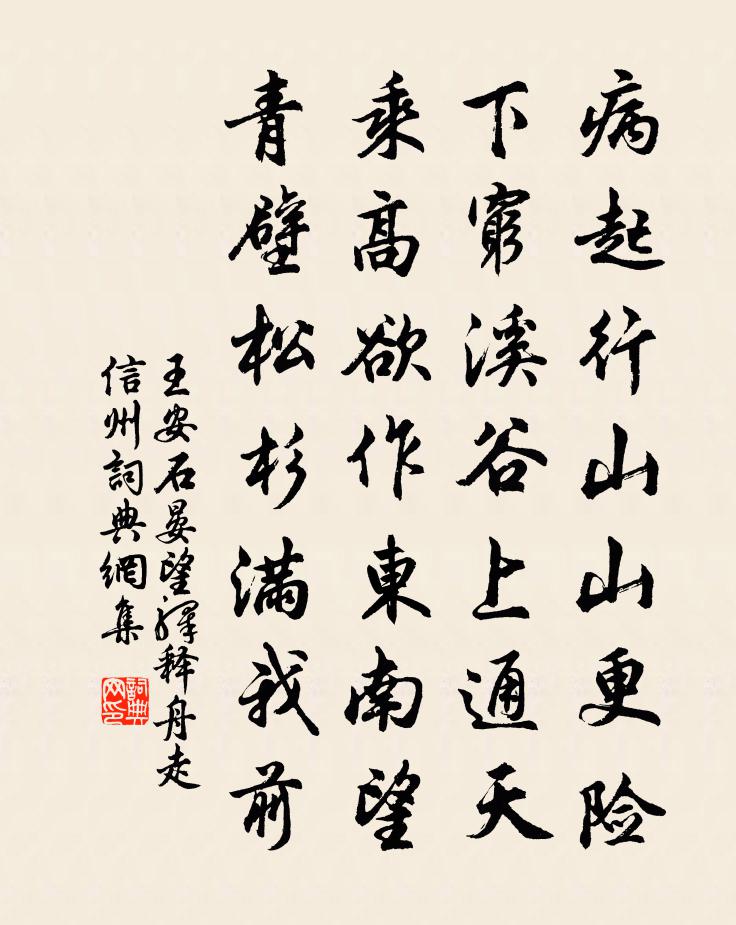 病起行山山更险
下穷溪谷上通天
乘高欲作東南望
青壁松杉满我前
王安石晏望驛释舟走
信州詞典網集
詞典网印